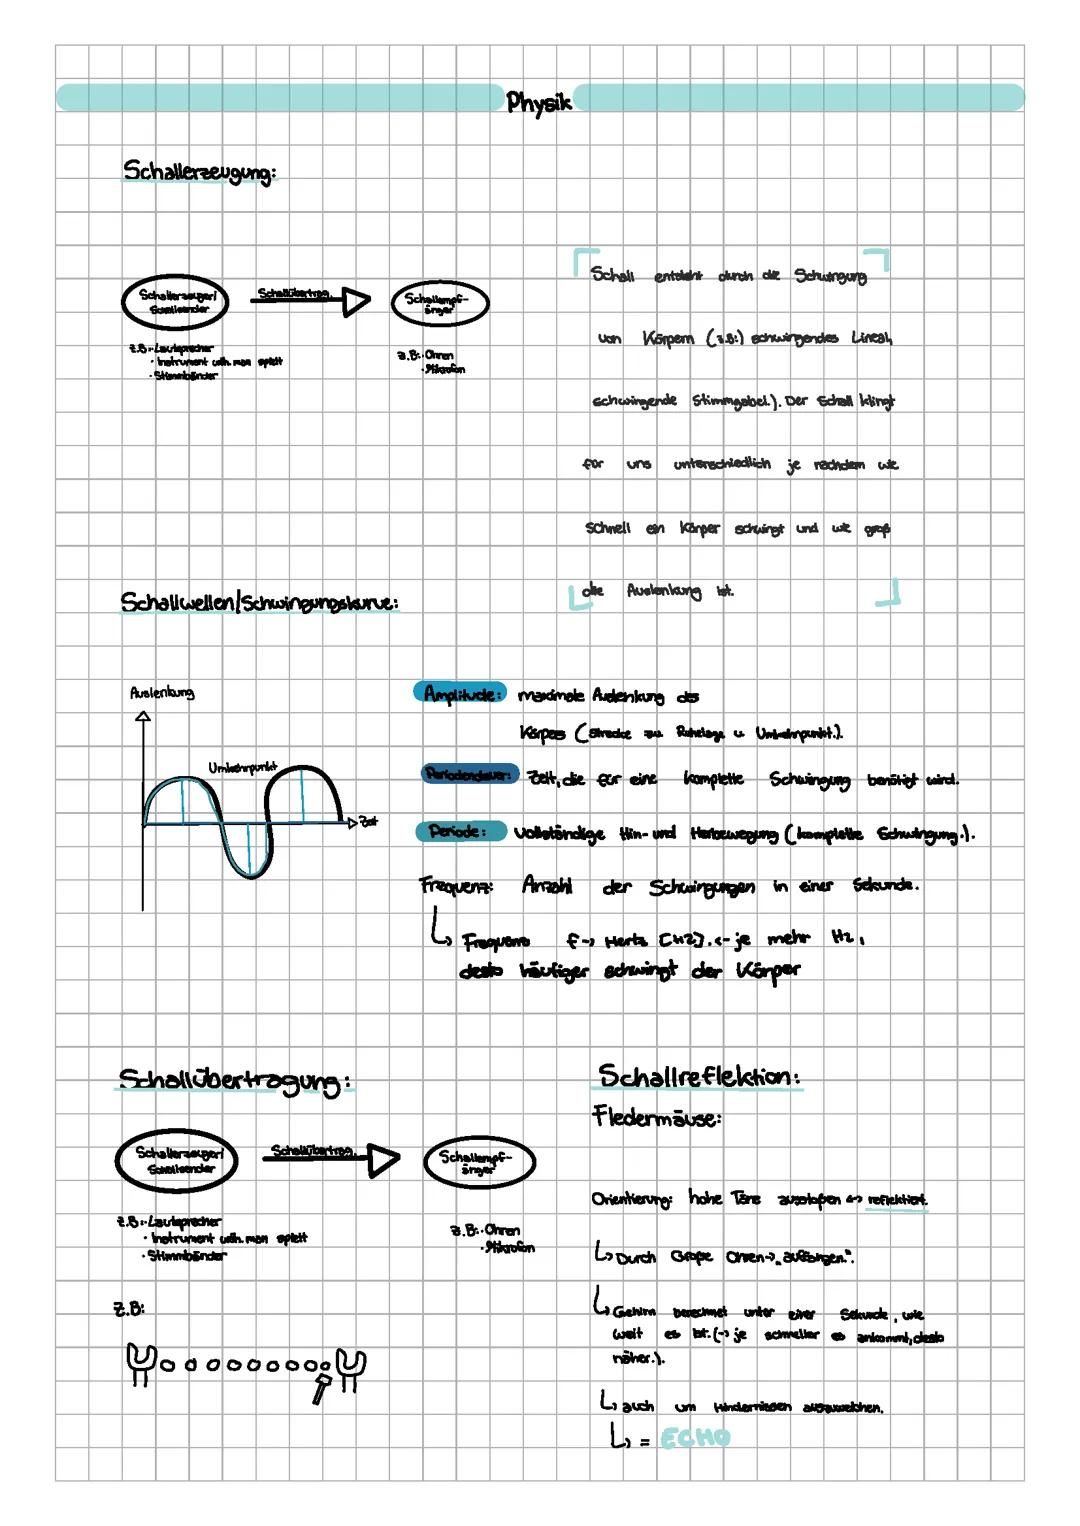 Physik
Schallerzeugung:
Schallerzeuger/
Schallsender
Schallübertrag.
Schallempf-
änger
z.B.:· Lautsprecher
· Instrument welh. man spielt
· Stimmbänder
z.B.:· Ohren
· Mikrofon
Schall entsteht durch die Schwingung
von Körpern (z.B:) schwingendes Lineal,
schwingende Stimmgabel.). Der Schall klingt
für uns unterschiedlich je nachdem wie
schnell ein Körper schwingt und wie groß
die Auslenkung ist.
Schallwellen/Schwingungskurve:
Auslenkung
Umkehrpunkt
Zeit
Amplitude: maximale Auslenkung des
Körpes (Strecke zu Ruhelage u Umkehrpunkt.).
Periodendauer: Zeit, die für eine komplette Schwingung benötigt wird.
Periode: Vollständige Hin- und Herbewegung (komplette Schwingung.).
Frequenz: Anzahl der Schwingungen in einer Sekunde.
↳ Frequenz f-> Hertz [HZ].<- je mehr Hz,
desto häufiger schwingt der Körper
Schallübertragung:
Schallerzeuger/
Schallsender
Schallübertrag.
Schallempf-
änger
z.B.:· Lautsprecher
· Instrument welh. man spielt
· Stimmbänder
z.B.:· Ohren
· Mikrofon
z.B:
Schallreflektion:
Fledermäuse:
Orientierung: hohe Töne ausstoßen <-> reflektiert.
↳ Durch Große Ohren-> „auffangen."
↳ Gehirn berechnet unter einer Sekunde, wie
weit es ist. (-> je schneller es ankommt, desto
näher.).
↳ auch um Hindernissen auszuweichen.
↳ = ECHO